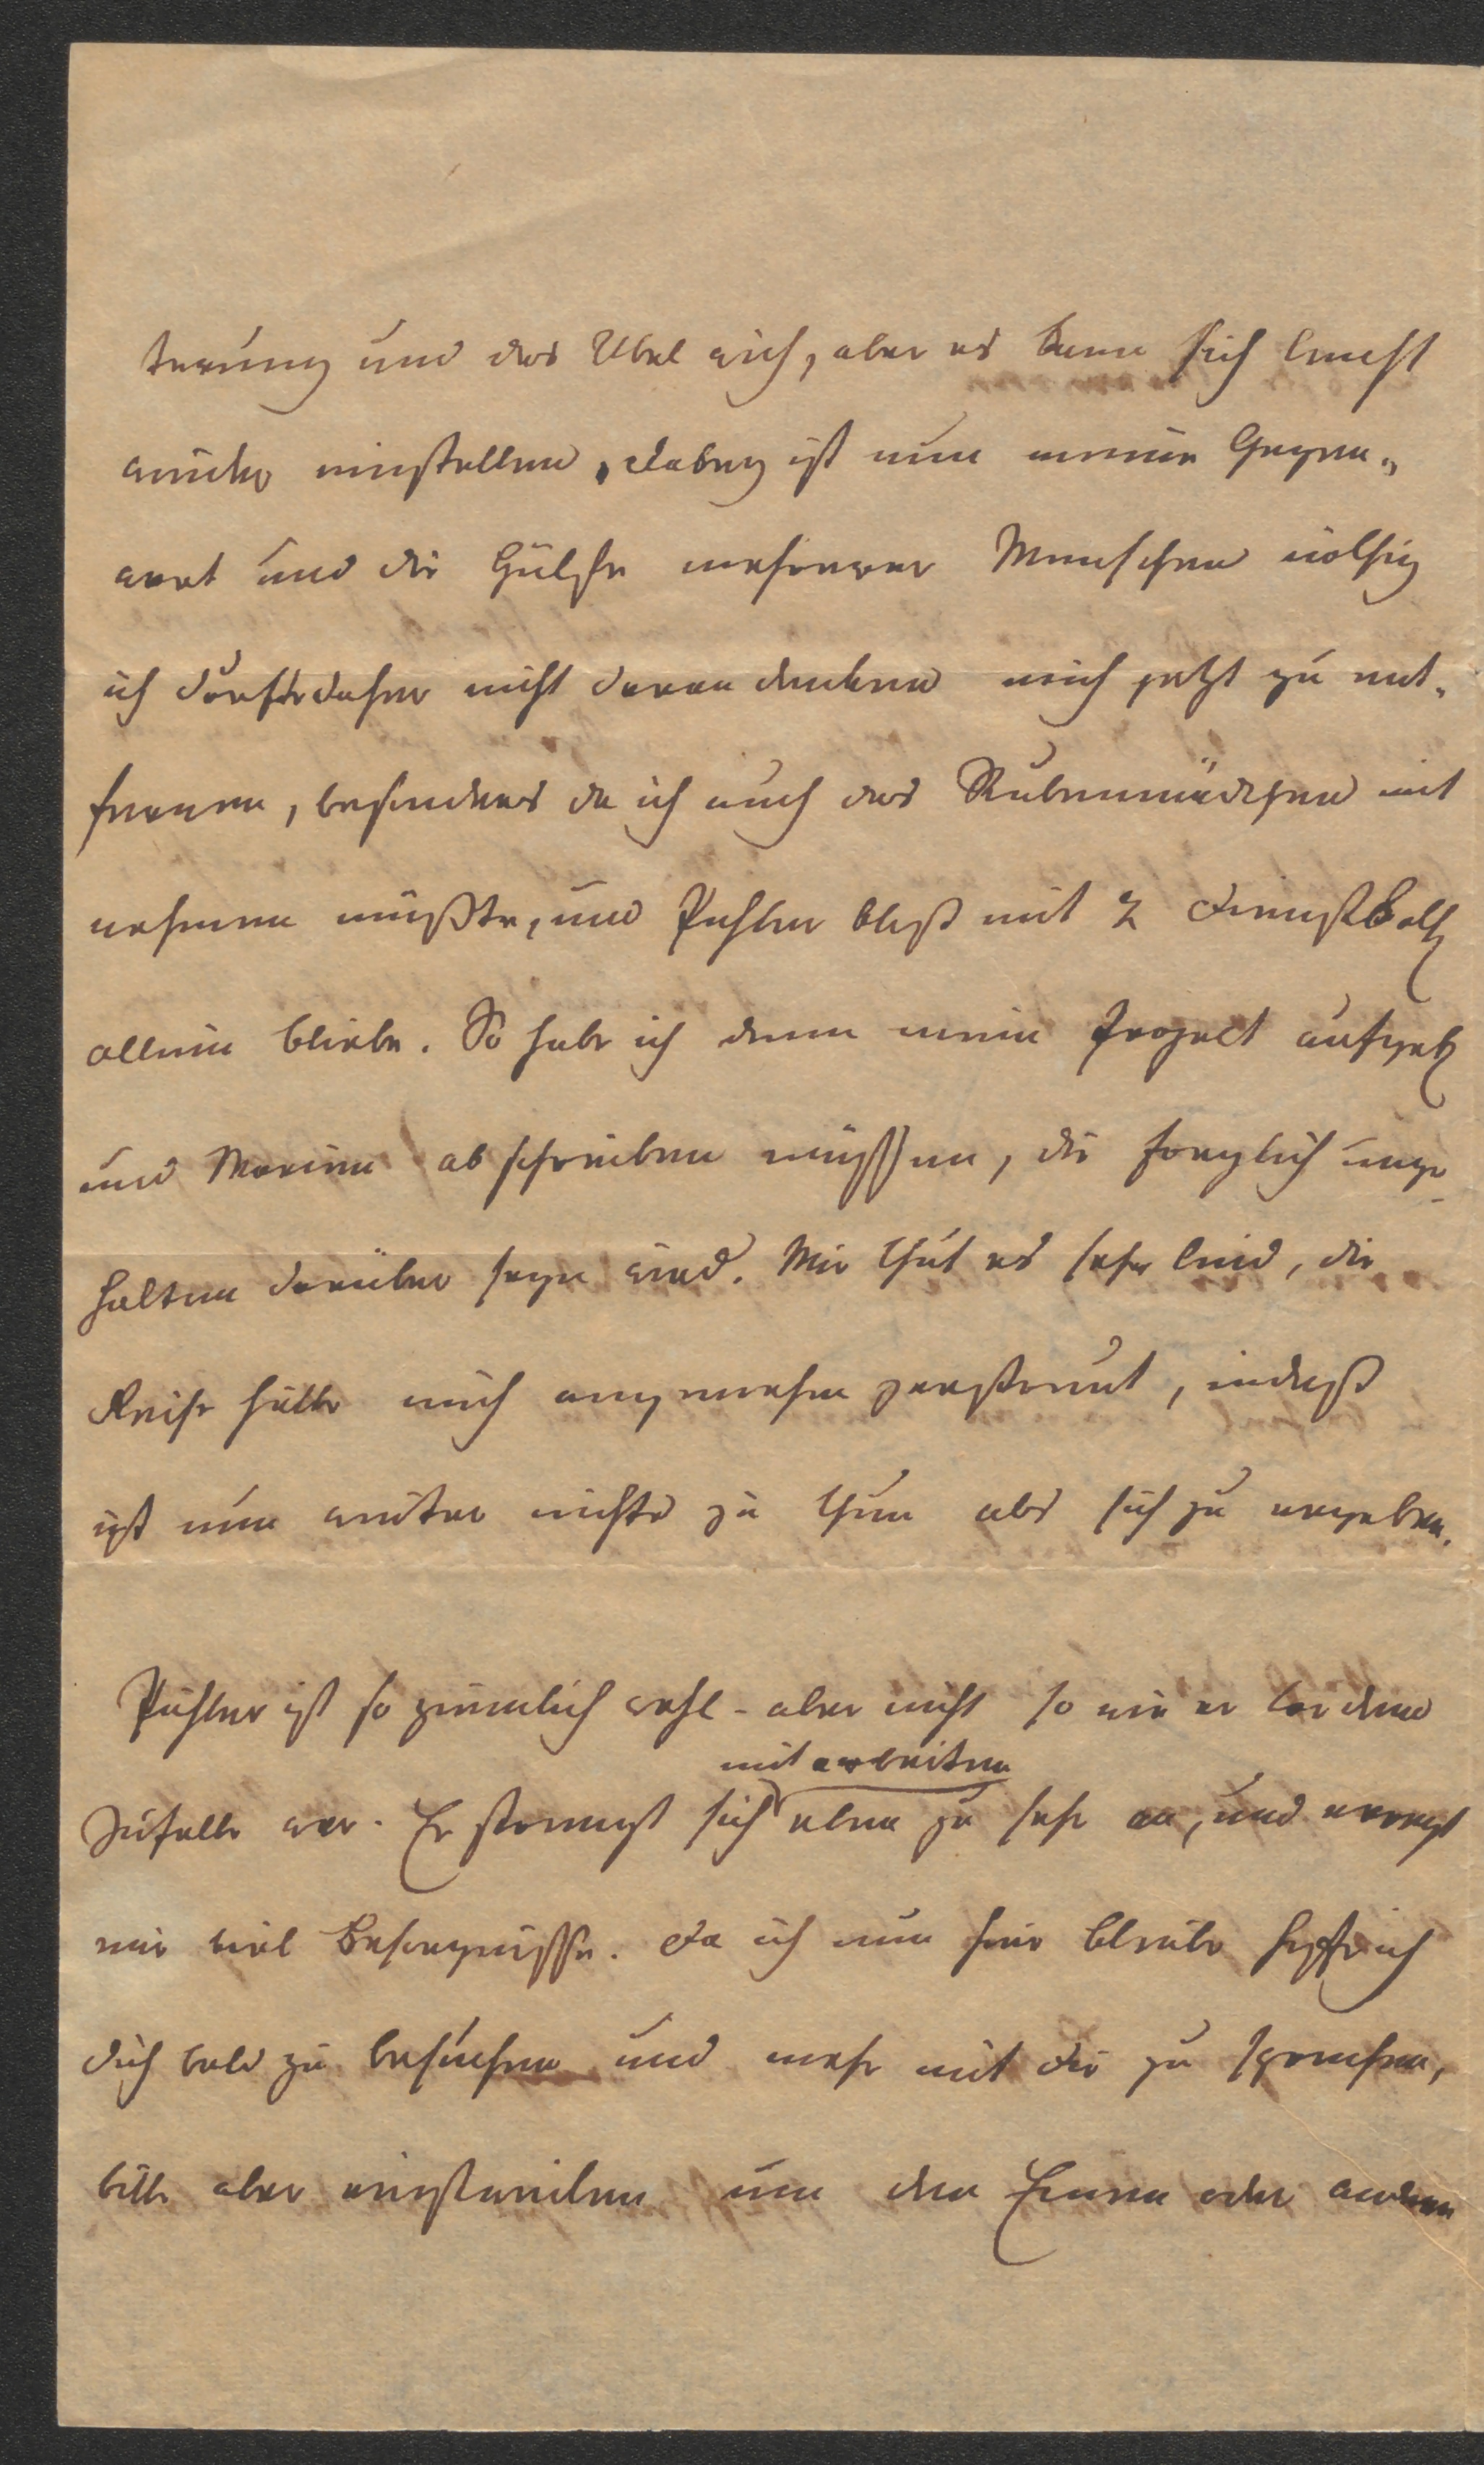 terung und das Übel wich, aber es kann sich leicht
wieder einstellen, dabey ist nun meine Gegen„
wart und die Hülfe mehrerer Menschen nöthig
ich dürfte daher nicht daran denken mich jetzt zu ent„
fernen, besonders da ich auch das Stubenmädchen mit
nehmen müßte, und Pichler bloß mit 2 Dienstboth
allein bliebe. So habe ich denn mein Project aufgeb
und Marien abschreiben müssen, die sorglich unge-
halten darüber seyn wird. Mir thut es sehr leid, die
Reise hätte mich angenehm zerstreut, indeß
ist nun weiter nichts zu thun als sich zu ergeben.
Pichler ist so ziemlich wohl - aber nicht so wie er vor dem
mit arbeiten
Zufalle war. Er strengt sich eben zu sehr an, und erregt
mir viel Besorgnisse. Da ich nun hier bleibe hoffe ich
dich bald zu besuchen und mehr mit dir zu sprechen,
bitte aber einstweilen um den Einen oder andern